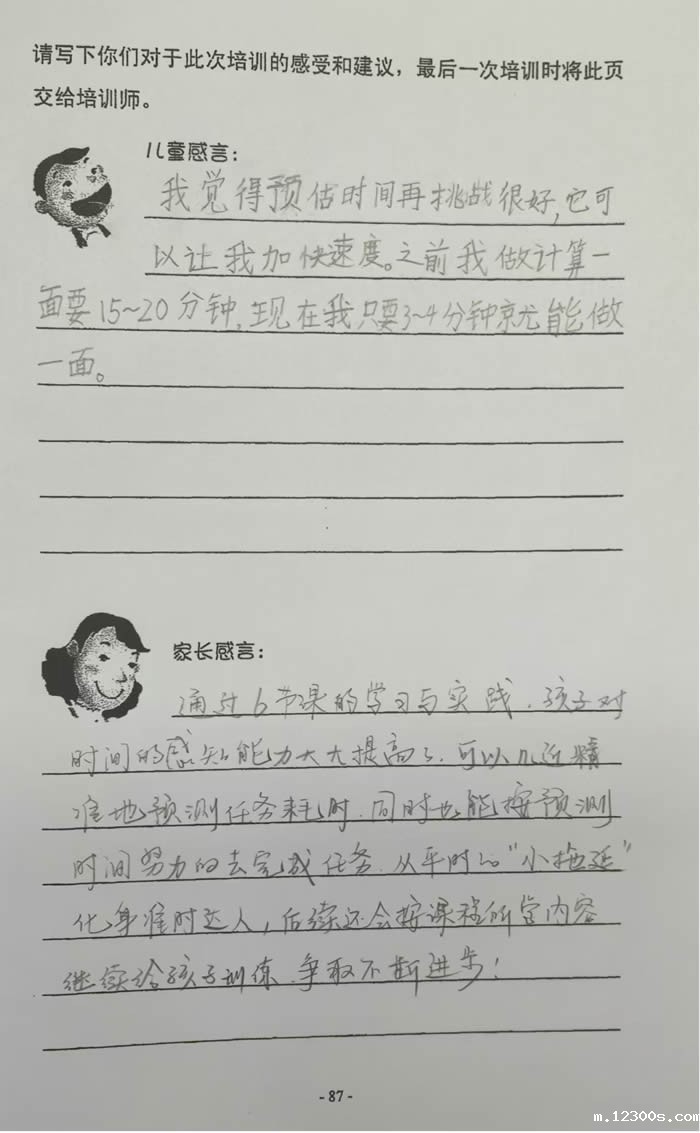 请写下你们对于此次培训的感受和建议，最后一次培训时将此页
交给培训师。
儿童感言：
我觉得预估时间再挑战很好，它可
以让我加快速度。之前我做计算一
面要15~20分钟，现在我只要3~4分钟就能做
一面。
家长感言：
通过6节课的学习与实践，孩子对
时间的感知能力大大提高了，可以几近精
准地预测任务耗时，同时也能按预测
时间努力的去完成任务，从平时的“小拖延”
化身准时达人，后续还会按课程所学内容
继续给孩子训练，争取不断进步！
- 87 -
m.12300s.com